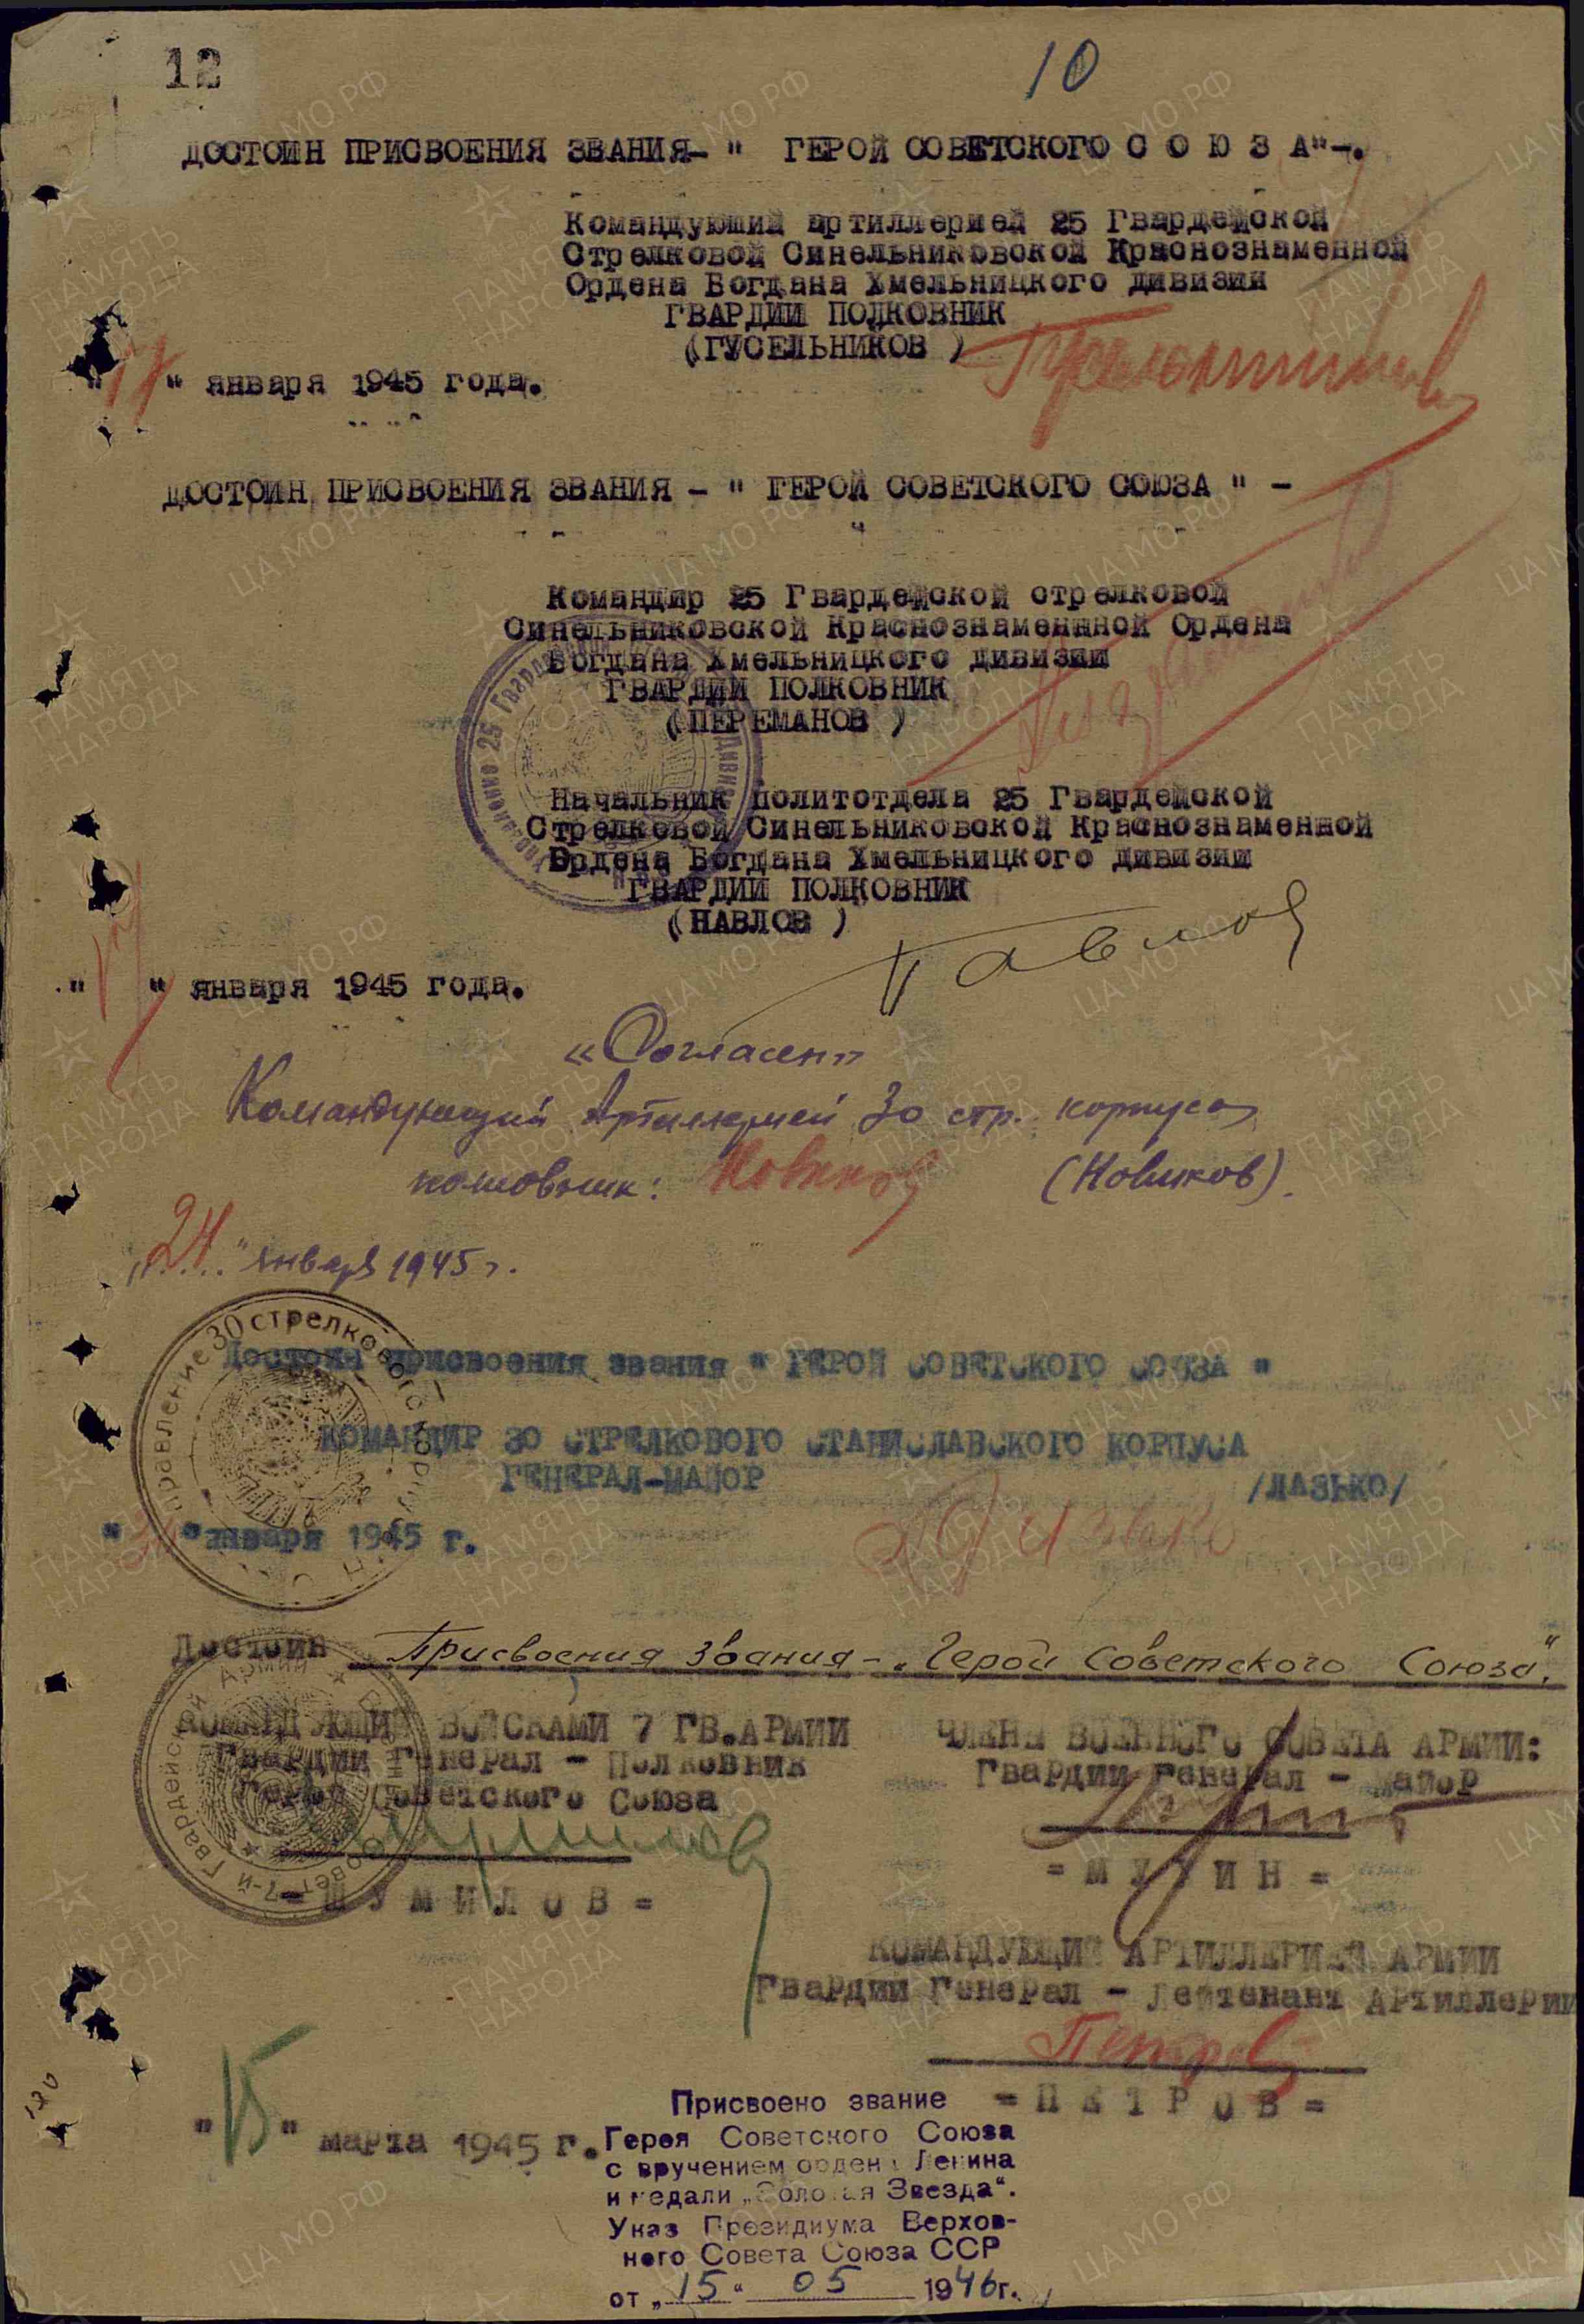 12
10
ДОСТОИН ПРИСВОЕНИЯ ЗВАНИЯ- " ГЕРОЙ СОВЕТСКОГО С О Ю З А"-.
Командующий артиллерией 25 Гвардейской
Стрелковой Синельниковской Краснознаменной
Ордена Богдана Хмельницкого дивизии
ГВАРДИИ ПОЛКОВНИК
(ГУСЕЛЬНИКОВ )
"17" января 1945 года.
ДОСТОИН ПРИСВОЕНИЯ ЗВАНИЯ - " ГЕРОЙ СОВЕТСКОГО СОЮЗА " -
Командир 25 Гвардейской стрелковой
Синельниковской Краснознаменной Ордена
Богдана Хмельницкого дивизии
ГВАРДИИ ПОЛКОВНИК
(ПЕРЕМАНОВ )
Начальник политотдела 25 Гвардейской
Стрелковой Синельниковской Краснознаменной
Ордена Богдана Хмельницкого дивизии
ГВАРДИИ ПОЛКОВНИК
(НАВЛОВ )
Павлов
" " января 1945 года.
«Согласен»
Командующий Артиллерией 30 стр. корпуса
полковник: Новиков (Новиков).
"24" января 1945 г.
Управление 30 стрелкового корпуса
Достоин присвоения звания " ГЕРОЙ СОВЕТСКОГО СОЮЗА "
КОМАНДИР 30 СТРЕЛКОВОГО СТАНИСЛАВСКОГО КОРПУСА
ГЕНЕРАЛ-МАЙОР /ЛАЗЬКО/
" "января 1945 г.
Достоин Присвоения звания - „Герой Советского Союза".
КОМАНДУЮЩИЙ ВОЙСКАМИ 7 ГВ.АРМИИ
Гвардии Генерал - Полковник
Герой Советского Союза
= Ш У М И Л О В =
ЧЛЕН ВОЕННОГО СОВЕТА АРМИИ:
Гвардии Генерал - Майор
= М У Х И Н =
КОМАНДУЮЩИЙ АРТИЛЛЕРИЕЙ АРМИИ
Гвардии Генерал - Лейтенант Артиллерии
Петров
= П Е Т Р О В =
"15" марта 1945 г.
Присвоено звание
Героя Советского Союза
с вручением ордена Ленина
и медали „Золотая Звезда".
Указ Президиума Верхов-
ного Совета Союза ССР
от „15" 05 1946г.
120
ПАМЯТЬ НАРОДА
ЦА МО РФ